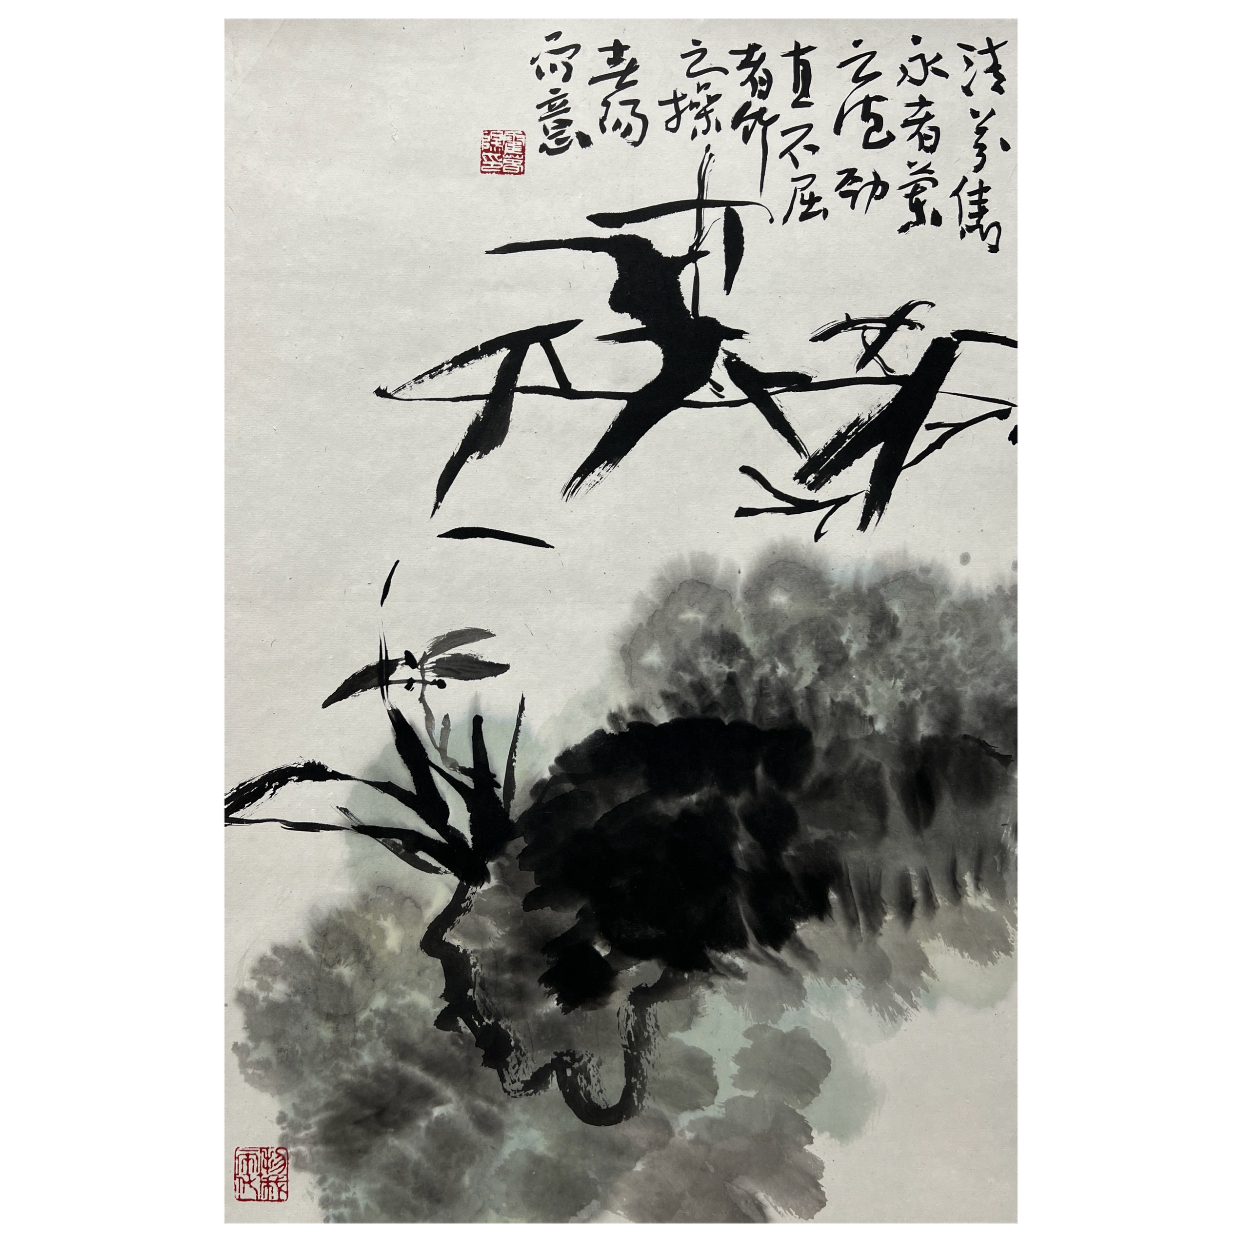 清芬儁
永者蘭
之德勁
直不屈
者竹
之操
春陽
尔意